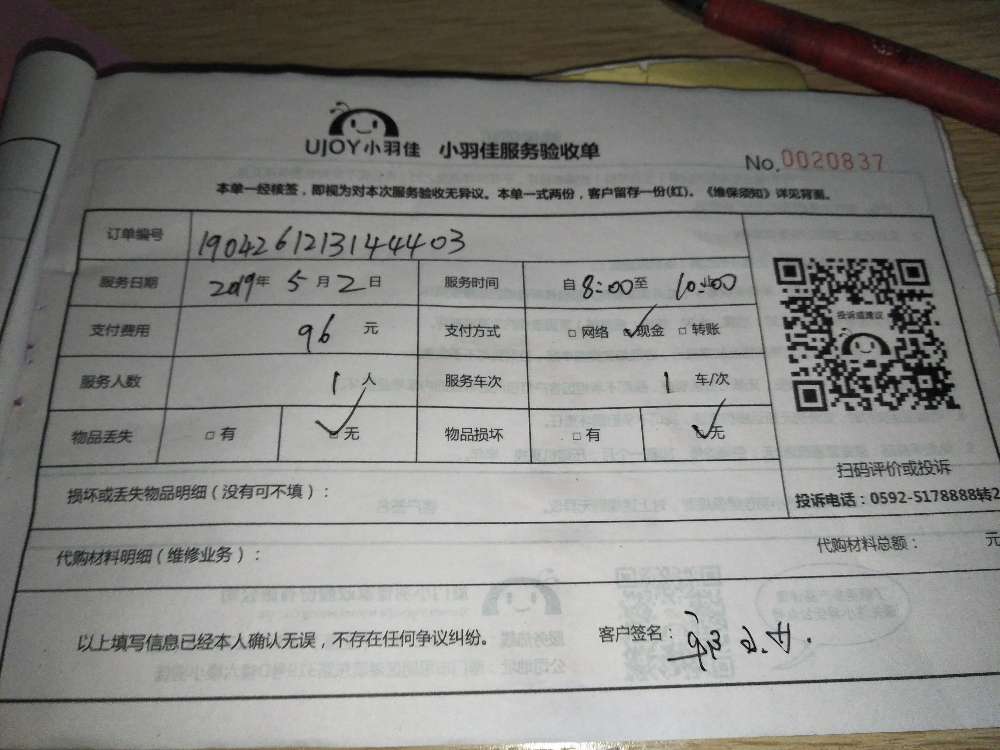 UJOY小羽佳 小羽佳服务验收单
No.0020837
本单一经核签,即视为对本次服务验收无异议。本单一式两份,客户留存一份(红)。《维保须知》详见背面。
订单编号 19042612131444403
服务日期 2019年 5月2日 服务时间 自8:00至 10:00
支付费用 96 元 支付方式 □网络 ☑现金 □转账
服务人数 1人 服务车次 1 车/次
物品丢失 □有 ☑无 物品损坏 □有 ☑无
投诉或建议
扫码评价或投诉
投诉电话:0592-5178888转2
损坏或丢失物品明细(没有可不填):
代购材料明细(维修业务): 代购材料总额: 元
以上填写信息已经本人确认无误,不存在任何争议纠纷。 客户签名: